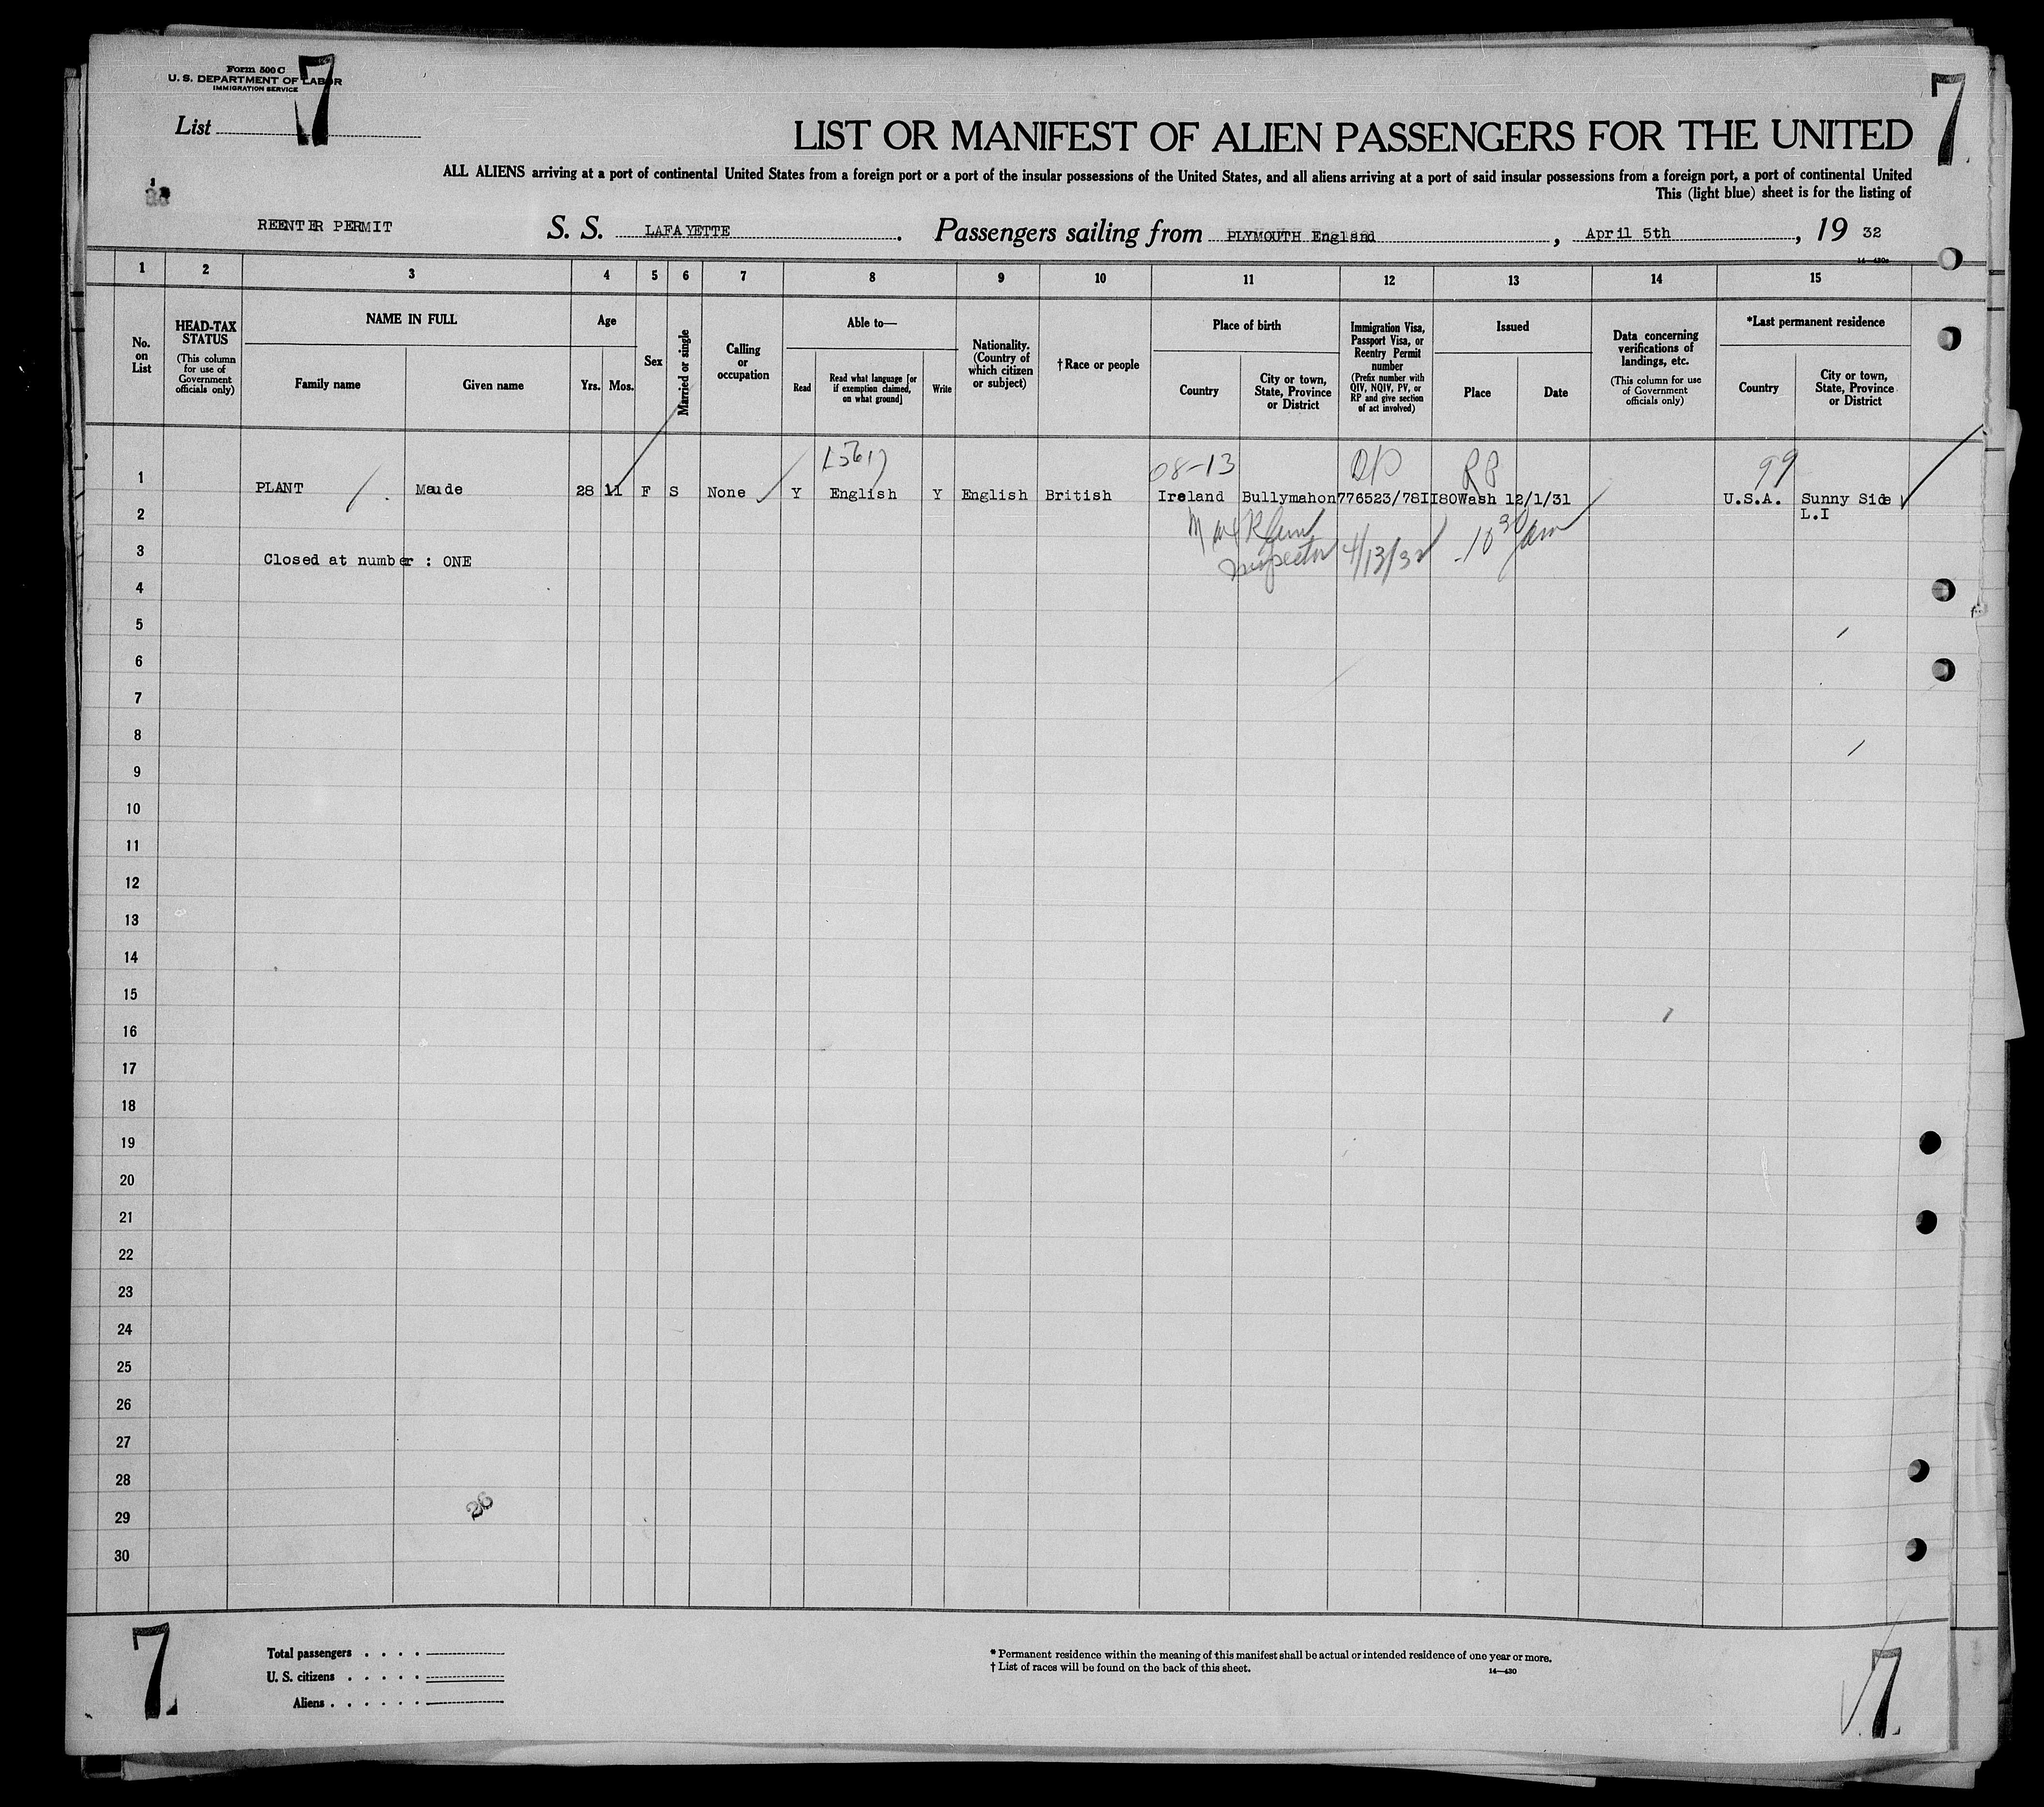 Form 500 C
U. S. DEPARTMENT OF LABOR
IMMIGRATION SERVICE
7
7
List
LIST OR MANIFEST OF ALIEN PASSENGERS FOR THE UNITED
ALL ALIENS arriving at a port of continental United States from a foreign port or a port of the insular possessions of the United States, and all aliens arriving at a port of said insular possessions from a foreign port, a port of continental United
This (light blue) sheet is for the listing of
REENTER PERMIT S. S. LAFAYETTE . Passengers sailing from PLYMOUTH England , April 5th , 19 32
14—430a
1 2 3 4 5 6 7 8 9 10 11 12 13 14 15
No. on List
HEAD-TAX STATUS
(This column for use of Government officials only)
NAME IN FULL
Family name
Given name
Age
Yrs.
Mos.
Sex
Married or single
Calling or occupation
Able to—
Read
Read what language [or if exemption claimed, on what ground]
Write
Nationality. (Country of which citizen or subject)
†Race or people
Place of birth
Country
City or town, State, Province or District
Immigration Visa, Passport Visa, or Reentry Permit number
(Prefix number with QIV, NQIV, PV, or RP and give section of act involved)
Issued
Place
Date
Data concerning verifications of landings, etc.
(This column for use of Government officials only)
*Last permanent residence
Country
City or town, State, Province or District
08-13 RP 99
1 PLANT Maude 28 11 F S None Y English Y English British Ireland Bullymahon 776523/78II80 Wash 12/1/31 U.S.A. Sunny Side
2 L.I
Inspector 4/13/32 10 30 am
3 Closed at number : ONE
4
5
6
7
8
9
10
11
12
13
14
15
16
17
18
19
20
21
22
23
24
25
26
27
28
29
30
26
7
Total passengers . . . .
U. S. citizens . . . . .
Aliens . . . . . .
* Permanent residence within the meaning of this manifest shall be actual or intended residence of one year or more.
† List of races will be found on the back of this sheet.
14—430
7